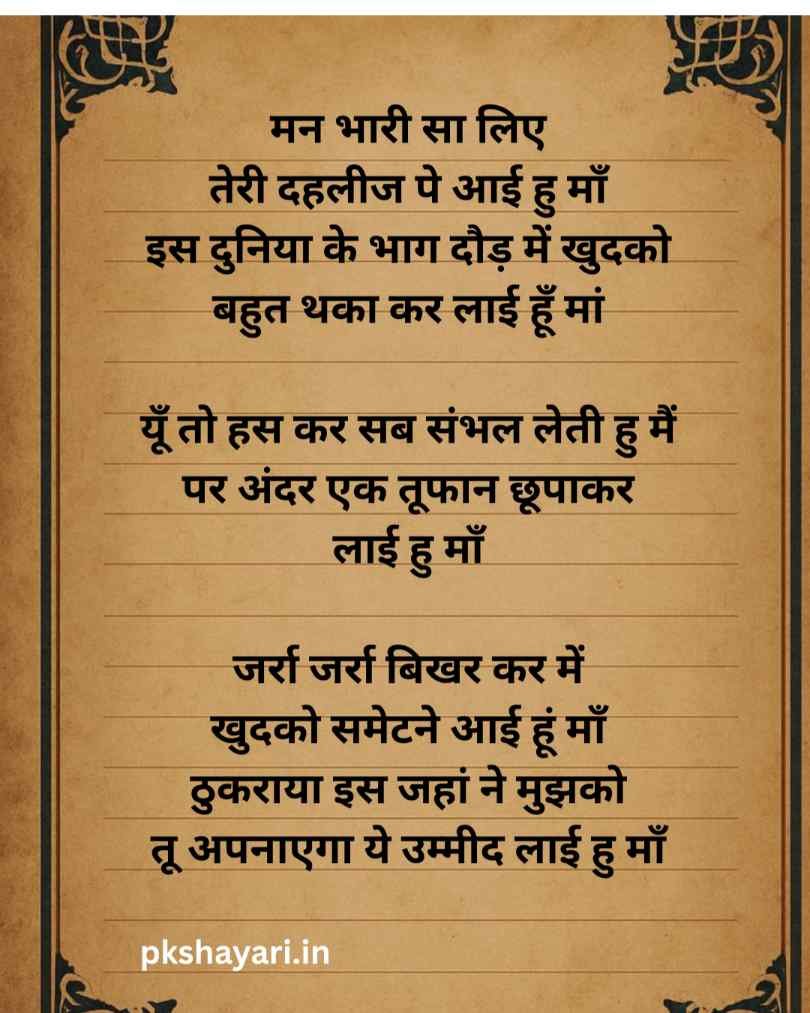 मन भारी सा लिए
तेरी दहलीज पे आई हु माँ
इस दुनिया के भाग दौड़ में खुदको
बहुत थका कर लाई हूँ मां
यूँ तो हस कर सब संभल लेती हु मैं
पर अंदर एक तूफान छूपाकर
लाई हु माँ
जर्रा जर्रा बिखर कर में
खुदको समेटने आई हूं माँ
ठुकराया इस जहां ने मुझको
तू अपनाएगा ये उम्मीद लाई हु माँ
pkshayari.in